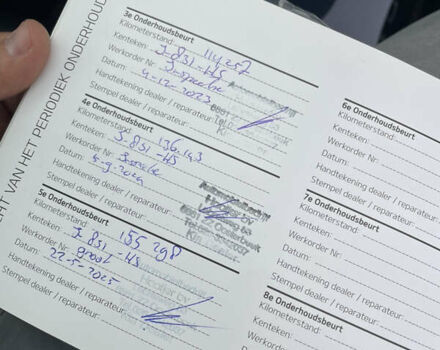 CHT VAN HET PERIODIEK ONDERHOUD
3e Onderhoudsbeurt
Kilometerstand: 114.257
Kenteken: J-831-HS
Werkorder Nr:
Datum: 4-12-2023
Handtekening dealer / reparateur:
Stempel dealer / reparateur:
4e Onderhoudsbeurt
Kilometerstand: 136.143
Kenteken: J-831-HS
Werkorder Nr:
Datum: 4-9-2024
Handtekening dealer / reparateur:
Stempel dealer / reparateur:
5e Onderhoudsbeurt
Kilometerstand: 155298
Kenteken: J 831-HS
Werkorder Nr: groot
Datum: 22-5-2025
Handtekening dealer / reparateur:
Stempel dealer / reparateur:
6e Onderhoudsbeurt
Kilometerstand:
Kenteken:
Werkorder Nr:
Datum:
Handtekening dealer
Stempel dealer / repara
7e Onderhoudsbeurt
Kilometerstand:
Kenteken:
Werkorder Nr:
Datum:
Handtekening dealer / re
Stempel dealer / reparateu
8e Onderhoudsbeurt
Kilometerstand:
Kenteken:
Werkorder Nr:
Datum:
Handtekening